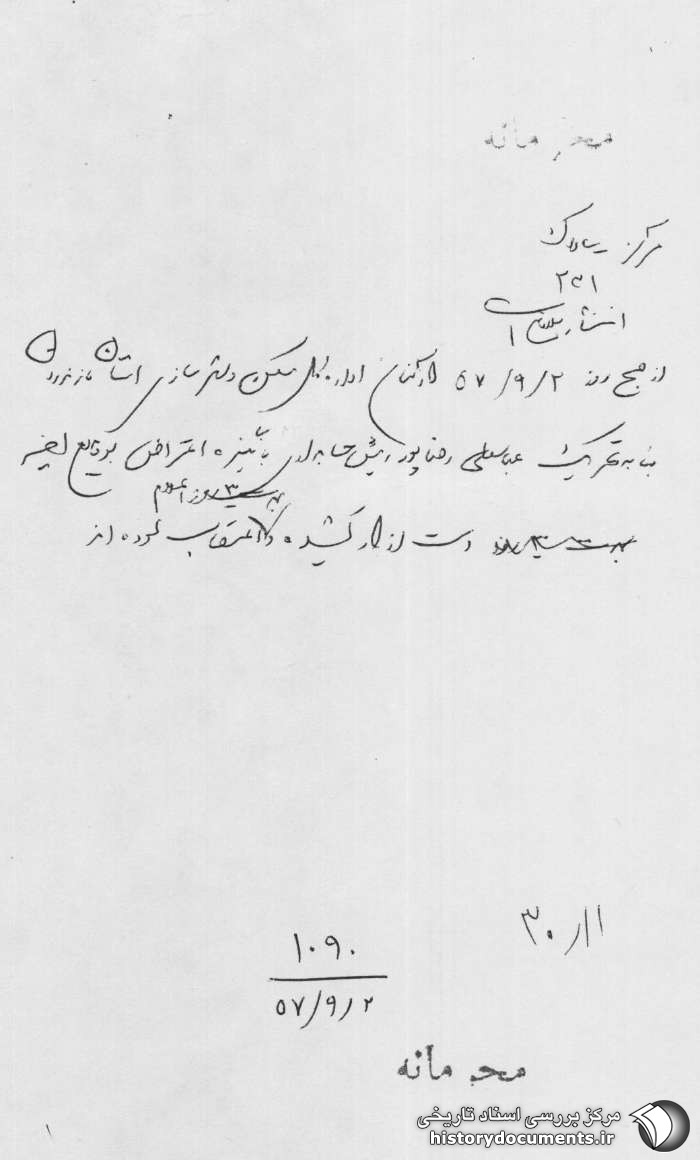 محرمانه
مرکز ساواک
۲۳۱
انتشار
از صبح روز ۵۷/۹/۲ کارکنان اداره کل مسکن و شهرسازی استان مازندران
بنا به تحریک عباسعلی رضاپور رئیس حسابداری با انگیزه اعتراض به وقایع اخیر
۳ روز اعلام
دست از کار کشیده و اعتصاب نموده اند
۱۱/۳۰
۱۰۹۰
۵۷/۹/۲
محرمانه
مرکز بررسی اسناد تاریخی
historydocuments.ir